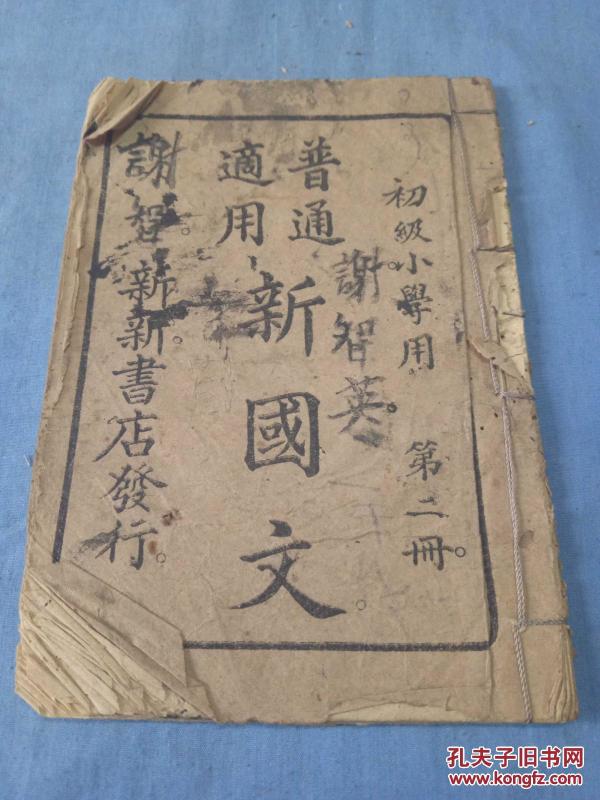 初級小學用 第二冊。
謝智英。
普通
適用
新國文。
謝智。新新書店發行。
孔夫子旧书网
www.kongfz.com